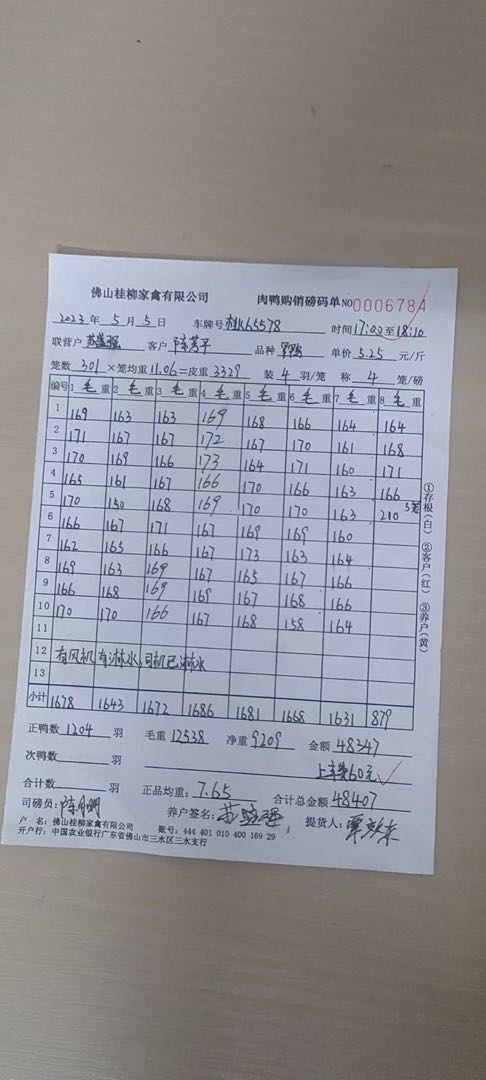 佛山桂柳家禽有限公司 肉鸭购销磅码单 NO 0006784
2023年5月5日 车牌号 K65578 时间 17:00至18:10
联营户 客户 陈芳平 品种 单价 5.25 元/斤
笼数 301 ×笼均重 11.06=皮重 3329 装 4 羽/笼 称 4 笼/磅
编号 1 毛重 2 毛重 3 毛重 4 毛重 5 毛重 6 毛重 7 毛重 8 毛重
1 169 163 163 169 168 166 164 164
2 171 167 167 172 167 170 161 168
3 170 169 166 173 164 171 160 171
4 165 161 167 166 170 166 163 166
5 170 150 168 169 170 170 163 210 5笼
6 166 167 171 167 169 169 160
7 162 165 166 167 173 163 164
8 169 163 169 167 165 167 166
9 166 168 169 169 167 168 166
10 170 170 166 167 168 158 164
11
12 有风机 有淋水 司机已淋水
13
小计 1678 1643 1672 1686 1681 1668 1631 879
①存根(白) ②客户(红) ③养户(黄)
正鸭数 1204 羽 毛重 12538 净重 9209 金额 48347
次鸭数 羽 上车费60元
合计数 羽 正品均重: 7.65 合计总金额 48407
司磅员: 养户签名: 提货人:
户 名: 佛山桂柳家禽有限公司 账号: 444 401 010 400 169 29
开户行: 中国农业银行广东省佛山市三水区三水支行